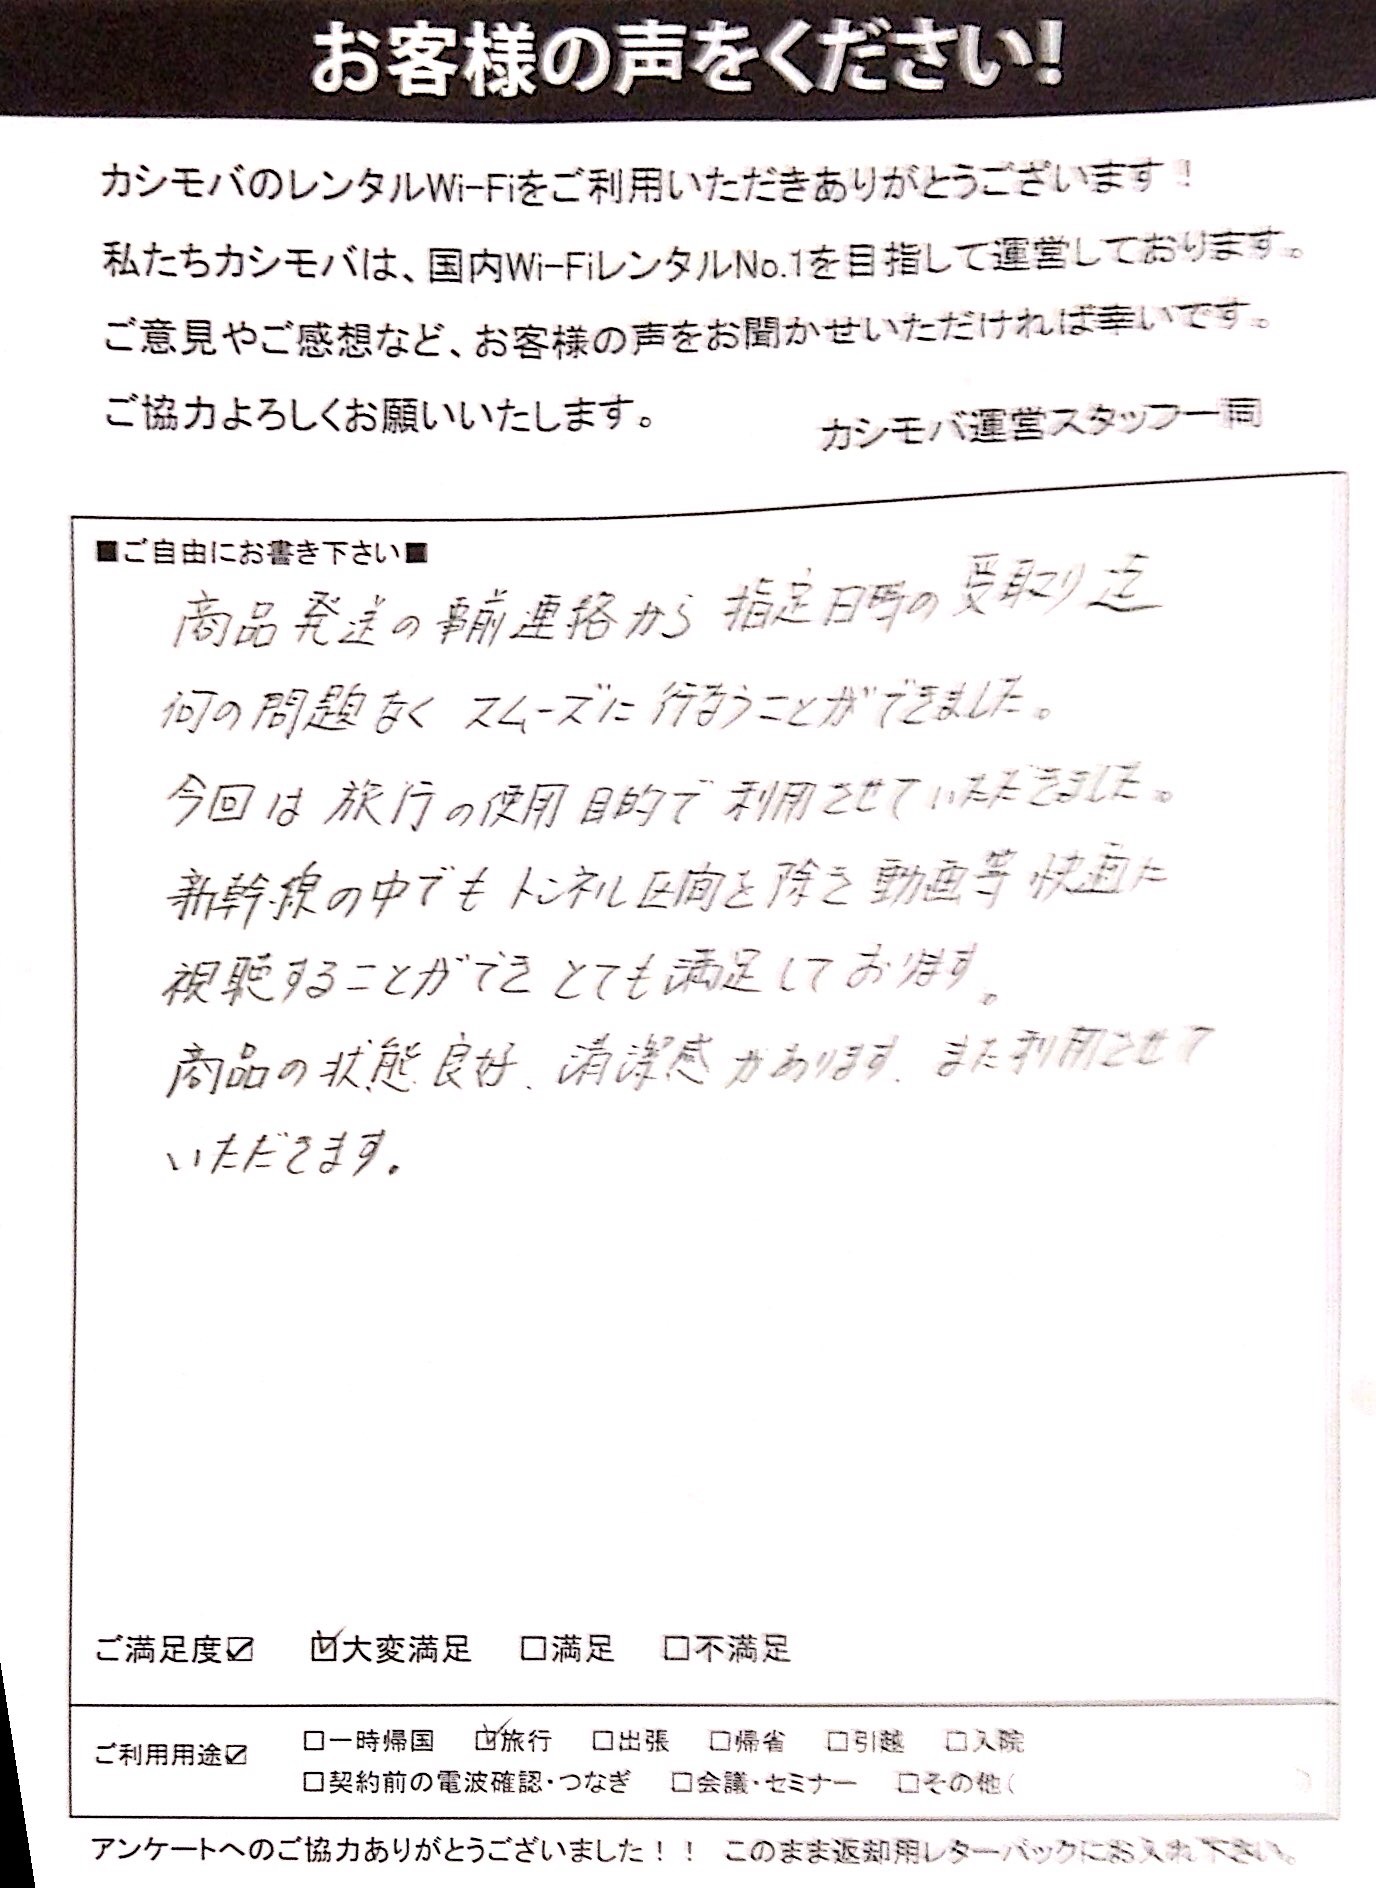 お客様の声をください!
カシモバのレンタルWi-Fiをご利用いただきありがとうございます！
私たちカシモバは、国内Wi-FiレンタルNo.1を目指して運営しております。
ご意見やご感想など、お客様の声をお聞かせいただければ幸いです。
ご協力よろしくお願いいたします。
カシモバ運営スタッフ一同
■ご自由にお書き下さい■
商品発送の事前連絡から 指定日時の受取り迄
何の問題なく スムーズに 行なうことができました。
今回は 旅行の使用目的で 利用させていただきました。
新幹線の中でも トンネル区間を除き 動画等 快適に
視聴することができ とても満足しております。
商品の状態良好、清潔感があります、また利用させて
いただきます。
ご満足度☑ ☑大変満足 □満足 □不満足
ご利用用途☑ □一時帰国 ☑旅行 □出張 □帰省 □引越 □入院
□契約前の電波確認・つなぎ □会議・セミナー □その他( )
アンケートへのご協力ありがとうございました！！ このまま返却用レターパックにお入れ下さい。